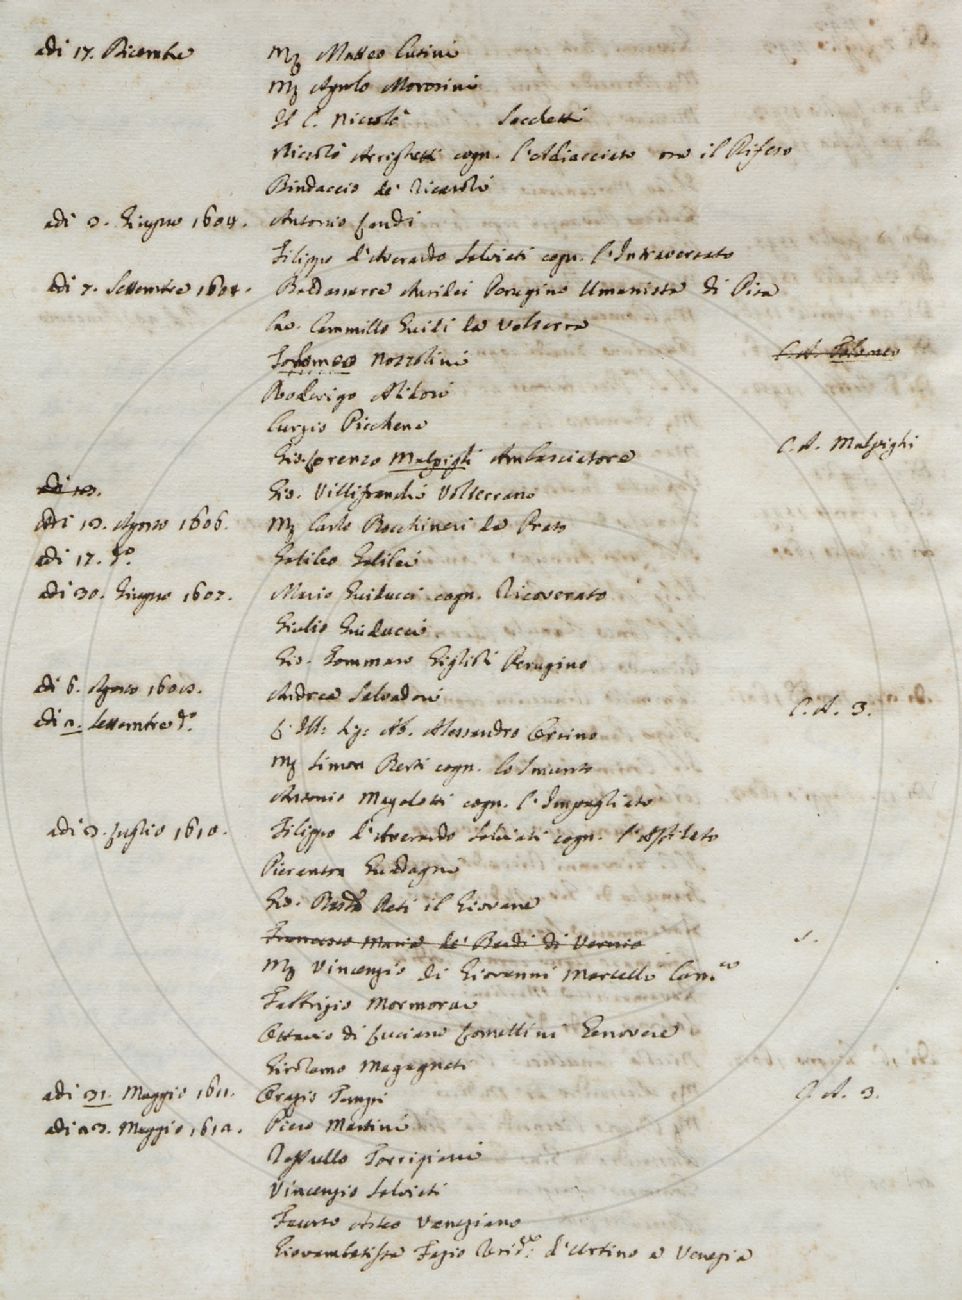 adi 17. Dicembre Mg Matteo Cutini
Mg Agnolo Morosini
Il C. Niccolò Sacchetti
Niccolò Arrighetti cogn. l'Adiacciato ora il Rifeso
Bindaccio de' Ricasoli
adi 2. Giugno 1604. Antonio Landi
Filippo d'Averardo Salviati cogn. l'Intraversato
adi 7. Settembre 1604. Baldassarre Perugino Umanista di Pisa
Cav. Cammillo Guidi da Volterra
Tolomeo Nozzolini C. A. Tolomeo
Roderigo Alidosi
Curzio Picchena
Gio. Lorenzo Malpigli Ambasciatore C. A. Malpighi
adi 12. Gio. Villifranchi Volterrano
Adi 12. Agosto 1606. Mg Carlo Bocchineri da Prato
adi 17. do. Galileo Galilei
adi 30. Giugno 1607. Mario Guiducci cogn. Ricoverato
Giulio Guiducci
Gio. Tommaso Giglioli Perugino
di 6. Agosto Andrea Salvadori
adi 2. Settembre do. Ab. Alessandro Orsino C. A. 3.
Mg Simon Berti cogn. lo Smunto
Antonio Magalotti cogn. l'Impagliato
adi 2. Luglio 1610. Filippo d'Averardo Salviati cogn. l'Affidato
Pierantonio Guadagni
Gio. Batta Deti il Giovane
Francesco Maria de' Bardi di Vernio
Mg Vincenzio di Giovanni Martelli Canco
Fabbrizio Mormorai
Ottavio di Luciano Lomellini Genovese
Girolamo Magagnati
adi 31. Maggio 1611. Orazio Tempi C. A. 3.
adi 23. Maggio 1612. Piero Martini
Raffaello Torrigiani
Vincenzio Salviati
Fausto Veneziano
Giovambatista Fazio d'Urbino a Venezia